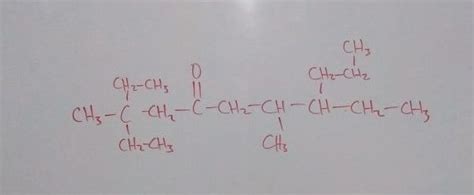 CH₃
CH₂-CH₃ O CH₂-CH₂
CH₃-C-CH₂-C-CH₂-CH-CH-CH₂-CH₃
CH₂-CH₃ CH₃